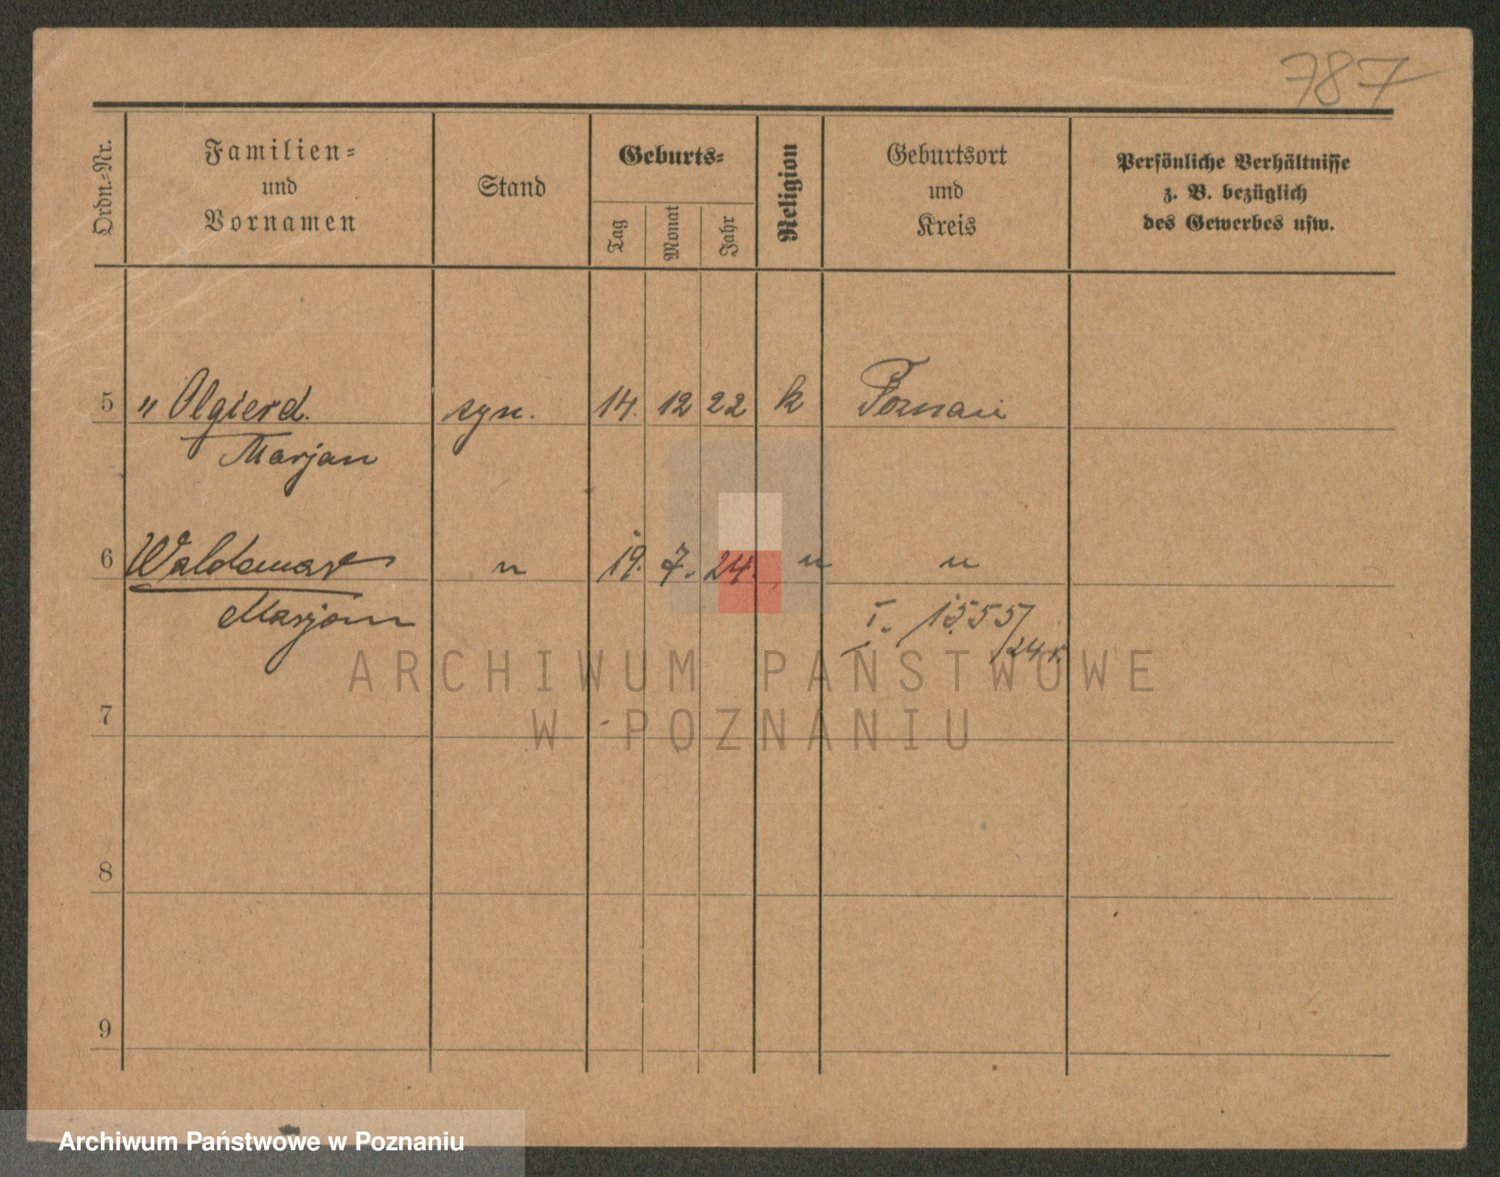 787
Ordn.-Nr.
Familien-
und
Vornamen
Stand
Geburts-
Tag
Monat
Jahr
Religion
Geburtsort
und
Kreis
Persönliche Verhältnisse
z. B. bezüglich
des Gewerbes usw.
5 " Olgierd. syn. 14. 12 22 k Poznań
Marjan
6 Waldemar " 19. 7. 24. " "
Marjan
I. 1555/
24 r.
7
8
9
ARCHIWUM PAŃSTWOWE
W POZNANIU
Archiwum Państwowe w Poznaniu